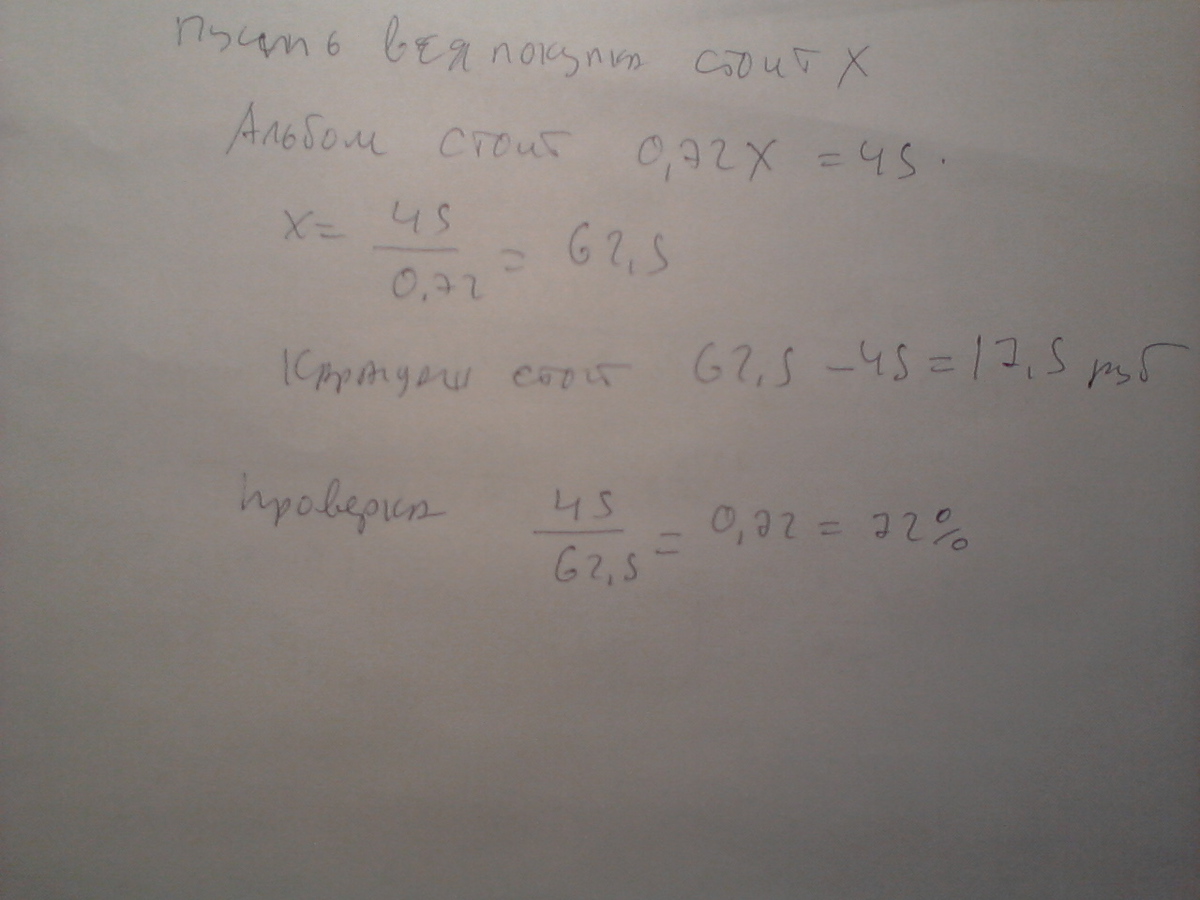 Пусть вся покупка стоит X
Альбом стоит 0,72X = 45.
X = 45 / 0,72 = 62,5
Карандаш стоит 62,5 - 45 = 17,5 руб
Проверка 45 / 62,5 = 0,72 = 72%